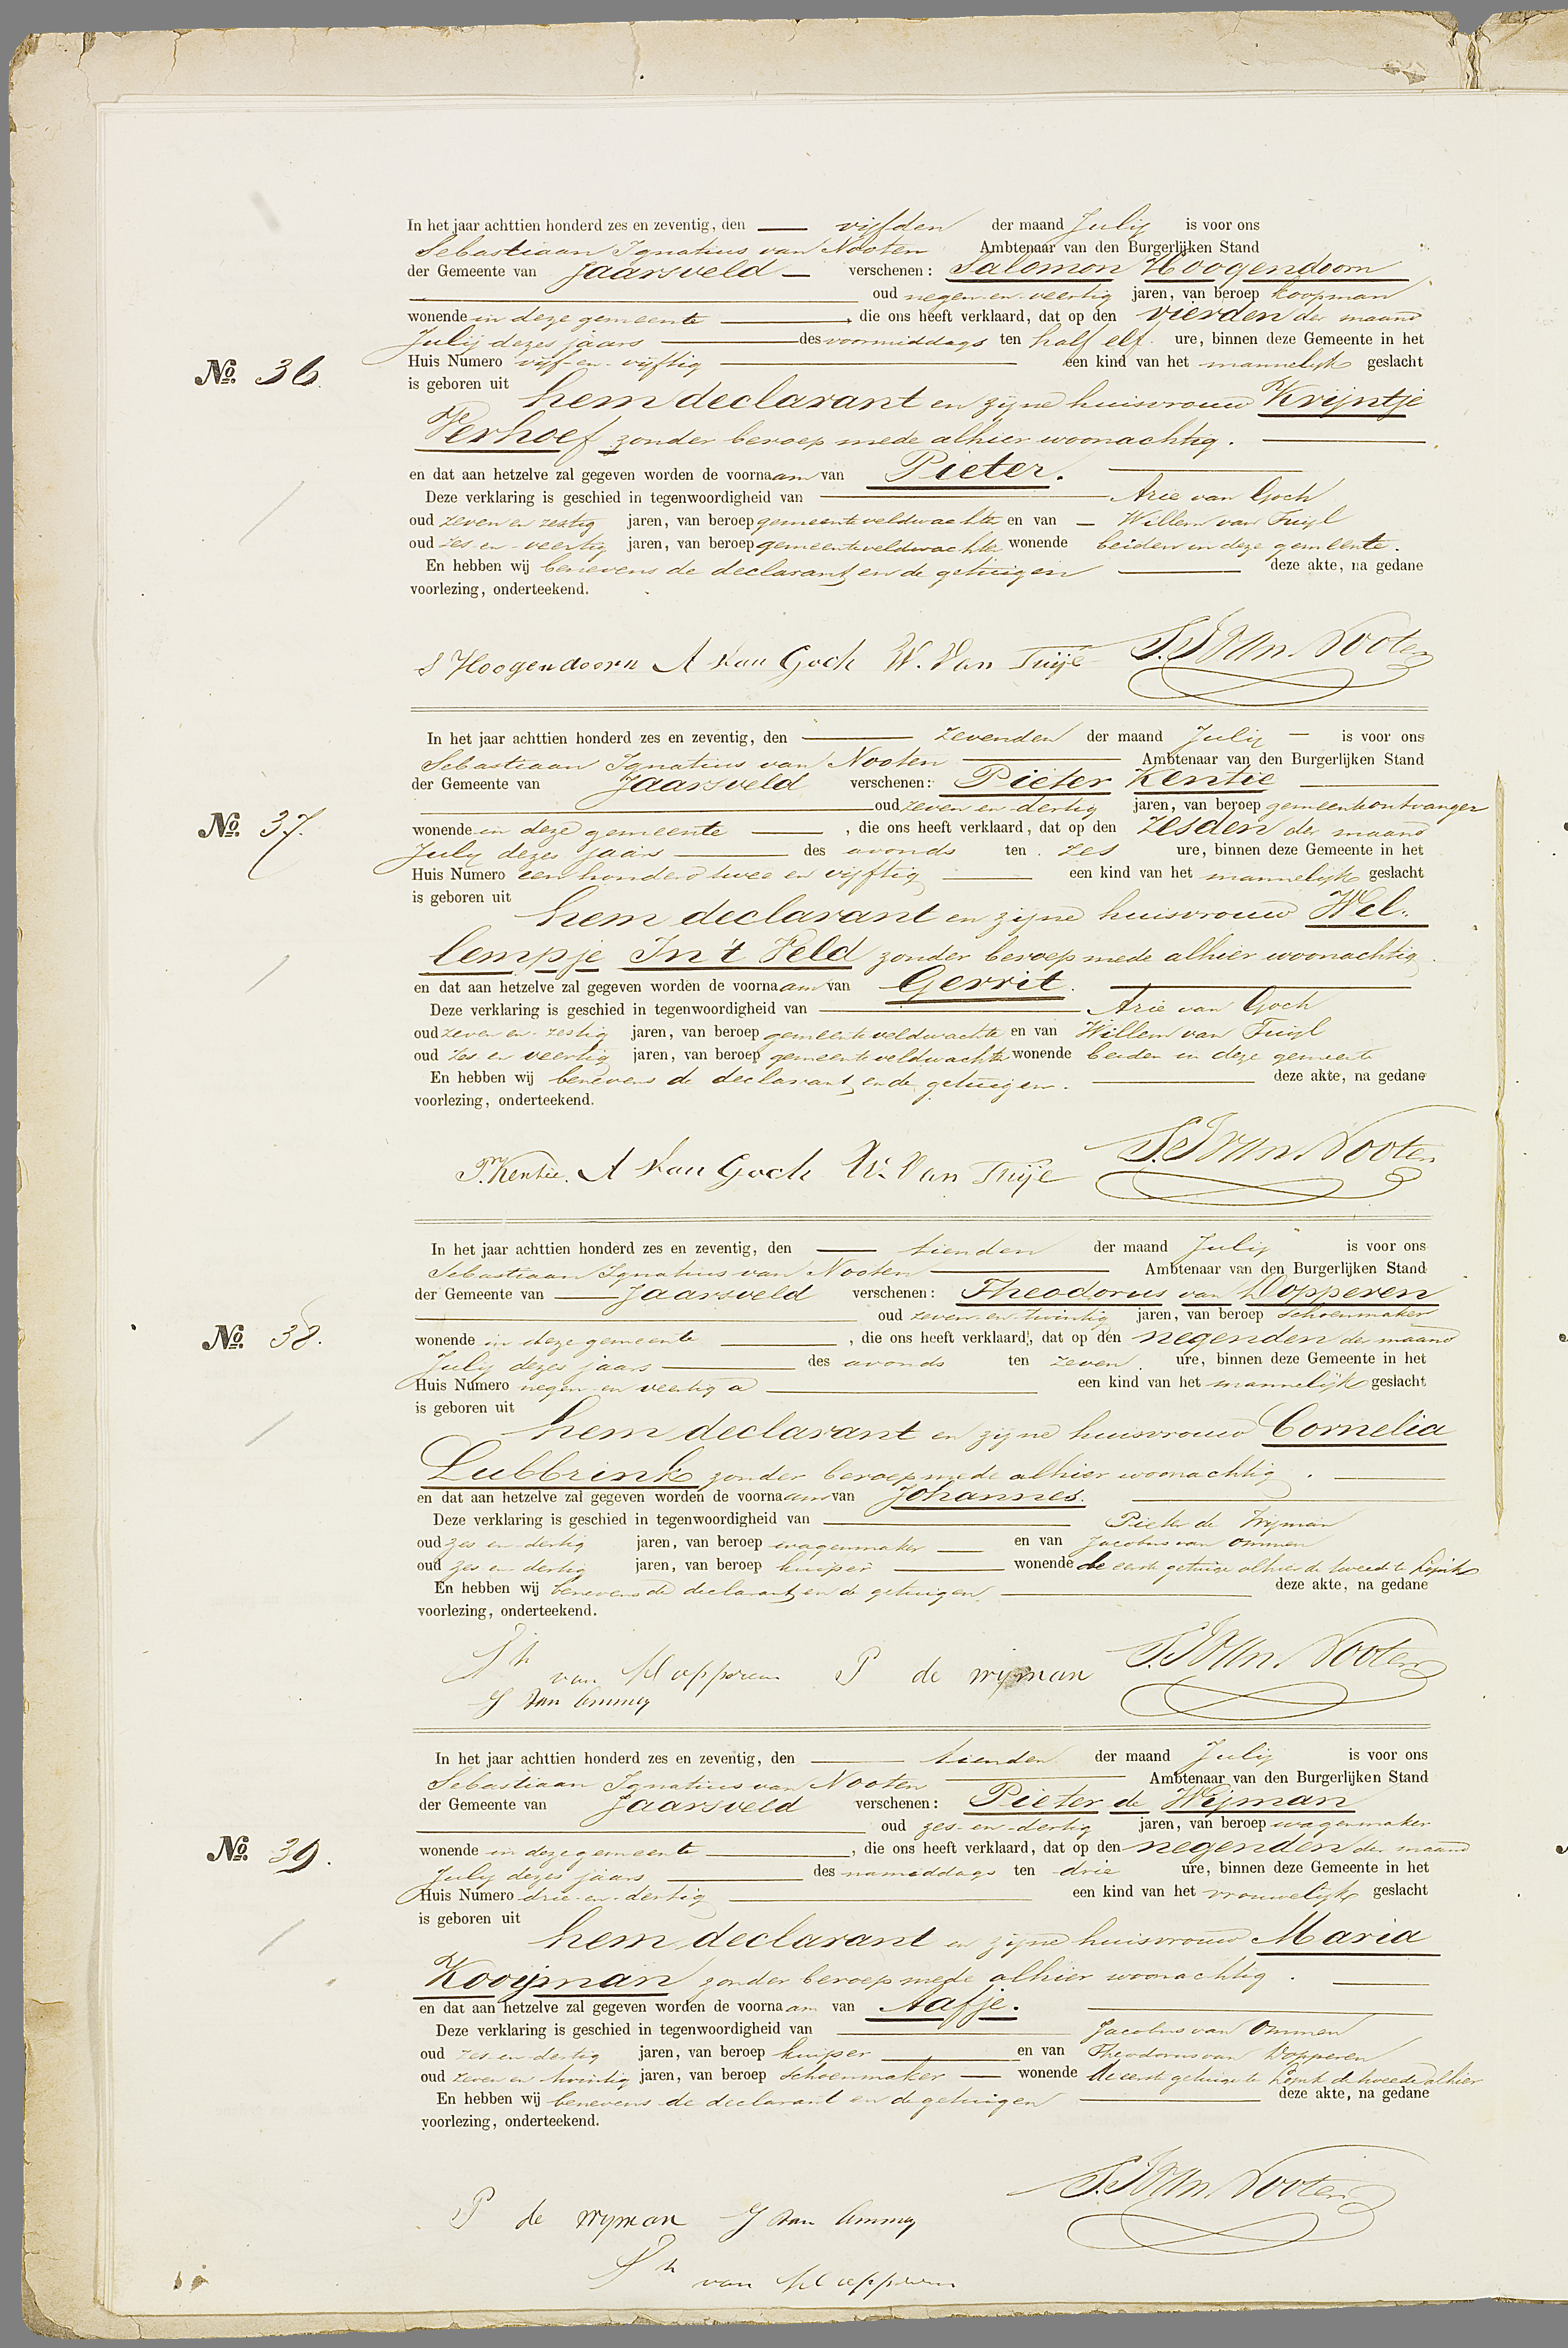 In het jaar achttien honderd zes en zeventig, den vijfden der maand Julij is voor ons
Sebastiaan Ignatius van Nooten Ambtenaar van den Burgerlijken Stand
der Gemeente van Jaarsveld verschenen: Salomon Hoogendoorn
oud negen en veertig jaren, van beroep koopman
wonende in deze gemeente, die ons heeft verklaard, dat op den vierden der maand
Julij dezes jaars des voormiddags ten half elf ure, binnen deze Gemeente in het
No. 36. Huis Numero vijf en vijftig een kind van het mannelijk geslacht
is geboren uit hem declarant en zijne huisvrouw Krijntje
Verhoef zonder beroep mede alhier woonachtig.
en dat aan hetzelve zal gegeven worden de voornaam van Pieter.
Deze verklaring is geschied in tegenwoordigheid van Arie van Goch
oud zeven en zestig jaren, van beroep gemeenteveldwachter en van Willem van Tuijl
oud zes en veertig jaren, van beroep gemeenteveldwachter wonende beiden in deze gemeente.
En hebben wij benevens de declarant en de getuigen deze akte, na gedane
voorlezing, onderteekend.
S Hoogendoorn A van Goch W. Van Tuijl S. I. van Nooten
In het jaar achttien honderd zes en zeventig, den zevenden der maand Julij is voor ons
Sebastiaan Ignatius van Nooten Ambtenaar van den Burgerlijken Stand
der Gemeente van Jaarsveld verschenen: Pieter Kentie
oud zeven en dertig jaren, van beroep gemeenteontvanger
No. 37. wonende in deze gemeente, die ons heeft verklaard, dat op den zesden der maand
July dezes jaars des avonds ten zes ure, binnen deze Gemeente in het
Huis Numero een honderd twee en vijftig een kind van het mannelijk geslacht
is geboren uit hem declarant en zijne huisvrouw Wel-
lempje In 't Veld zonder beroep mede alhier woonachtig.
en dat aan hetzelve zal gegeven worden de voornaam van Gerrit.
Deze verklaring is geschied in tegenwoordigheid van Arie van Goch
oud zeven en zestig jaren, van beroep gemeenteveldwachter en van Willem van Tuijl
oud zes en veertig jaren, van beroep gemeenteveldwachter wonende beiden in deze gemeente
En hebben wij benevens de declarant en de getuigen. deze akte, na gedane
voorlezing, onderteekend.
Pr. Kentie. A van Goch W. Van Tuijl S. I. van Nooten
In het jaar achttien honderd zes en zeventig, den tienden der maand Julij is voor ons
Sebastiaan Ignatius van Nooten Ambtenaar van den Burgerlijken Stand
der Gemeente van Jaarsveld verschenen: Theodorus van Dopperen
oud zeven en twintig jaren, van beroep schoenmaker
No. 38. wonende in deze gemeente, die ons heeft verklaard, dat op den negenden der maand
July dezes jaars des avonds ten zeven ure, binnen deze Gemeente in het
Huis Numero negen en veertig a een kind van het mannelijk geslacht
is geboren uit hem declarant en zijne huisvrouw Cornelia
Lubbrink zonder beroep mede alhier woonachtig.
en dat aan hetzelve zal gegeven worden de voornaam van Johannes.
Deze verklaring is geschied in tegenwoordigheid van Pieter de Wijman
oud zes en dertig jaren, van beroep wagenmaker en van Jacobus van Ommen
oud zes en dertig jaren, van beroep kuiper wonende de eerste getuige alhier de tweede te Lopik
En hebben wij benevens de declarant en de getuigen deze akte, na gedane
voorlezing, onderteekend.
Th van Dopperen P de Wijman S. I. van Nooten
J van Ommen
In het jaar achttien honderd zes en zeventig, den tienden der maand Julij is voor ons
Sebastiaan Ignatius van Nooten Ambtenaar van den Burgerlijken Stand
der Gemeente van Jaarsveld verschenen: Pieter de Wijman
oud zes en dertig jaren, van beroep wagenmaker
No. 39. wonende in deze gemeente, die ons heeft verklaard, dat op den negenden der maand
July dezes jaars des namiddags ten drie ure, binnen deze Gemeente in het
Huis Numero drie en dertig een kind van het vrouwelijk geslacht
is geboren uit hem declarant en zijne huisvrouw Maria
Kooijman zonder beroep mede alhier woonachtig.
en dat aan hetzelve zal gegeven worden de voornaam van Aafje.
Deze verklaring is geschied in tegenwoordigheid van Jacobus van Ommen
oud zes en dertig jaren, van beroep kuiper en van Theodorus van Dopperen
oud zeven en twintig jaren, van beroep schoenmaker wonende de eerste getuige te Lopik de tweede alhier
En hebben wij benevens de declarant en de getuigen deze akte, na gedane
voorlezing, onderteekend.
P de Wijman J van Ommen S. I. van Nooten
Th van Dopperen